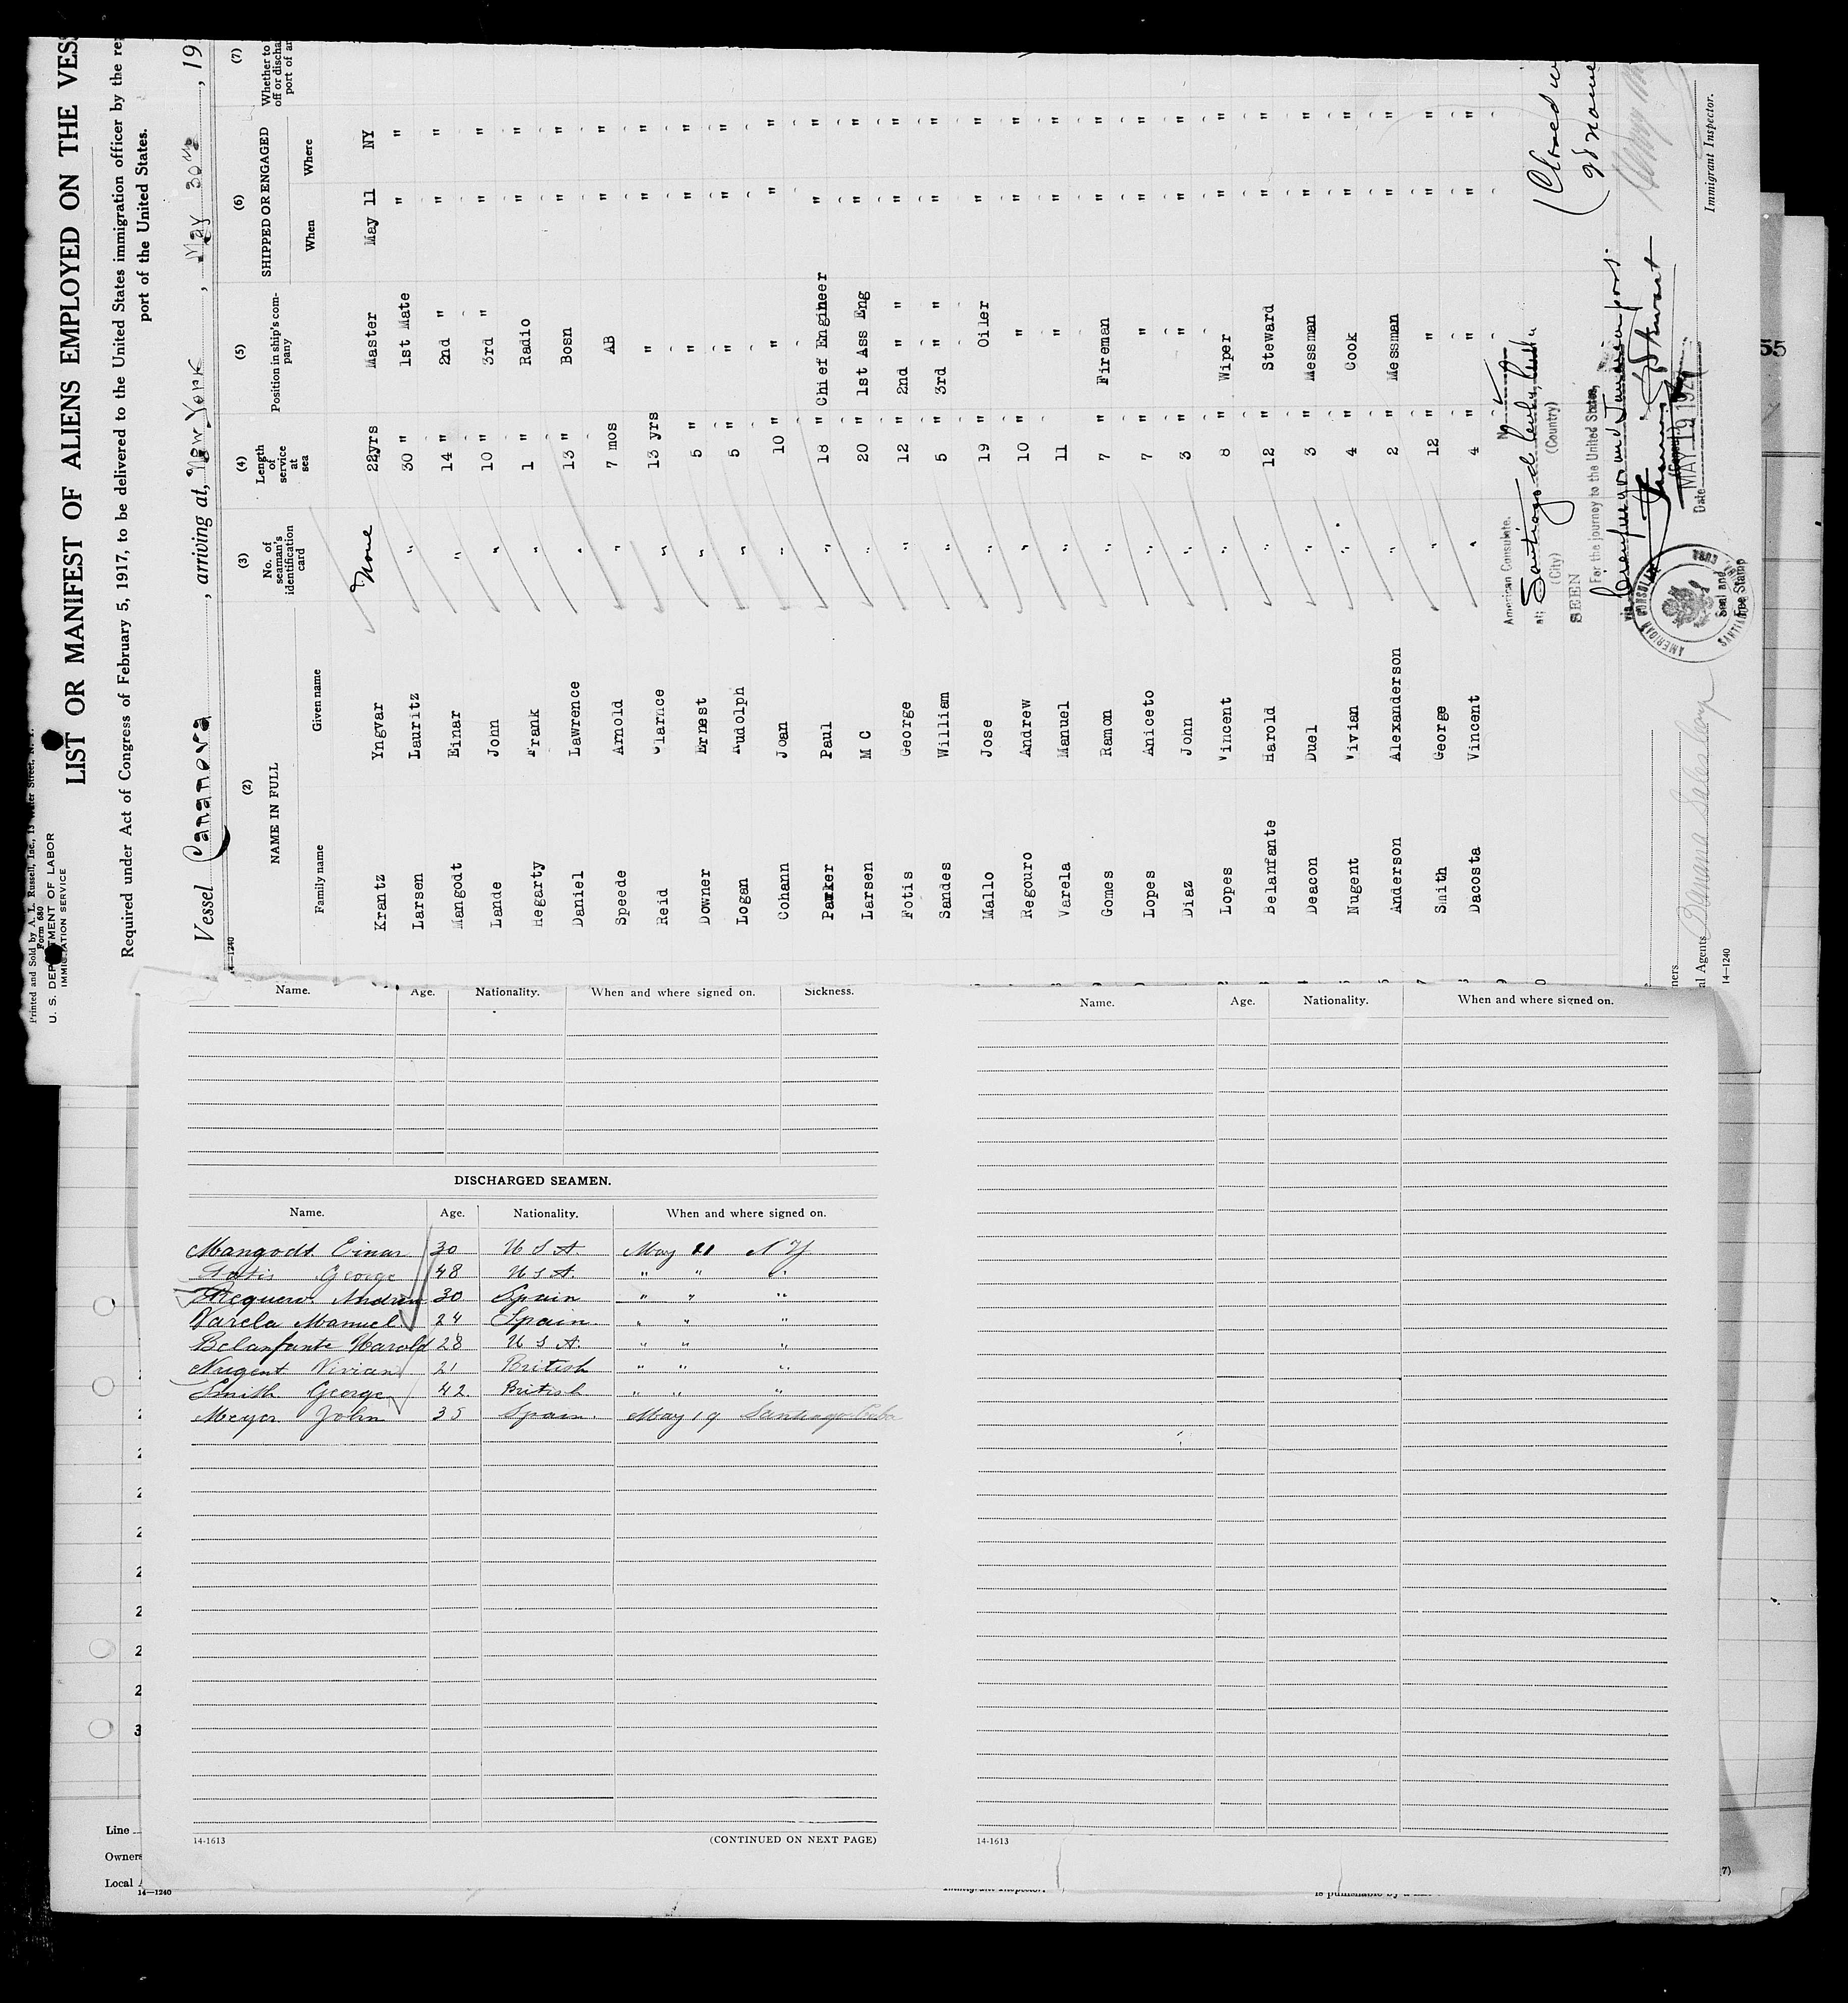 Printed and Sold by A. L. Russell, Inc., 15 Water Street, N. Y.
Form 680
U. S. DEPARTMENT OF LABOR
IMMIGRATION SERVICE
LIST OR MANIFEST OF ALIENS EMPLOYED ON THE VESS
Required under Act of Congress of February 5, 1917, to be delivered to the United States immigration officer by the re
port of the United States.
Vessel Cananova, arriving at, New York, May 30th, 19
14-1240
(2) (3) (4) (5) (6) (7)
NAME IN FULL No. of seaman's identification card Length of service at sea Position in ship's company SHIPPED OR ENGAGED Whether to
off or discha
port of ar
Family name Given name When Where
Krantz Yngvar None 22yrs Master May 11 NY
Larsen Lauritz " 30 " 1st Mate " "
Mangodt Einar " 14 " 2nd " " "
Lande John " 10 " 3rd " " "
Hegarty Frank " 1 " Radio " "
Daniel Lawrence " 13 " Bosn " "
Speede Arnold " 7 mos AB " "
Reid Clarnce " 13 yrs " " "
Downer Ernest " 5 " " " "
Logan Rudolph " 5 " " " "
Cohann Joan " 10 " " " "
Parker Paul " 18 " Chief Engineer " "
Larsen M C " 20 " 1st Ass Eng " "
Fotis George " 12 " 2nd " " " "
Sandes William " 5 " 3rd " " " "
Mallo Jose " 19 " Oiler " "
Regouro Andrew " 10 " " " "
Varela Manuel " 11 " " "
Gomes Ramon " 7 " Fireman " "
Lopes Aniceto " 7 " " " "
Diaz John " 3 " " " "
Lopes Vincent " 8 " Wiper " "
Belanfante Harold " 12 " Steward " "
Deacon Duel " 3 " Messman " "
Nugent Vivian " 4 " Cook " "
Anderson Alexanderson " 2 " Messman " "
Smith George " 12 " " " "
Dacosta Vincent " 4 " " " "
American Consulate,
at Santiago de Cuba, Cuba
(City) (Country)
SEEN
For the journey to the United States,
via
Date MAY 19
AMERICAN CONSULAR
SANTIAGO CUBA
Seal and
Fee Stamp
Immigrant Inspector.
ners
al Agents Banana Sales Corp
14-1240
55
Name. Age. Nationality. When and where signed on. Sickness.
DISCHARGED SEAMEN.
Name. Age. Nationality. When and where signed on.
Mangodt Einar 30 U S A. May 11 N Y
Fotis George 48 U S A. " " "
Requero Andrew 30 Spain " " "
Varela Manuel 24 Spain. " " "
Belanfante Harold 28 U S A. " " "
Nugent Vivian 21 British " " "
Smith George 42 British " " "
Meyer John 35 Spain. May 19 Santiago Cuba
14-1613 (CONTINUED ON NEXT PAGE)
Name. Age. Nationality. When and where signed on.
14-1613
Line
Owners
Local A
14-1240
Immigrant Inspector.
is punishable by a
7)